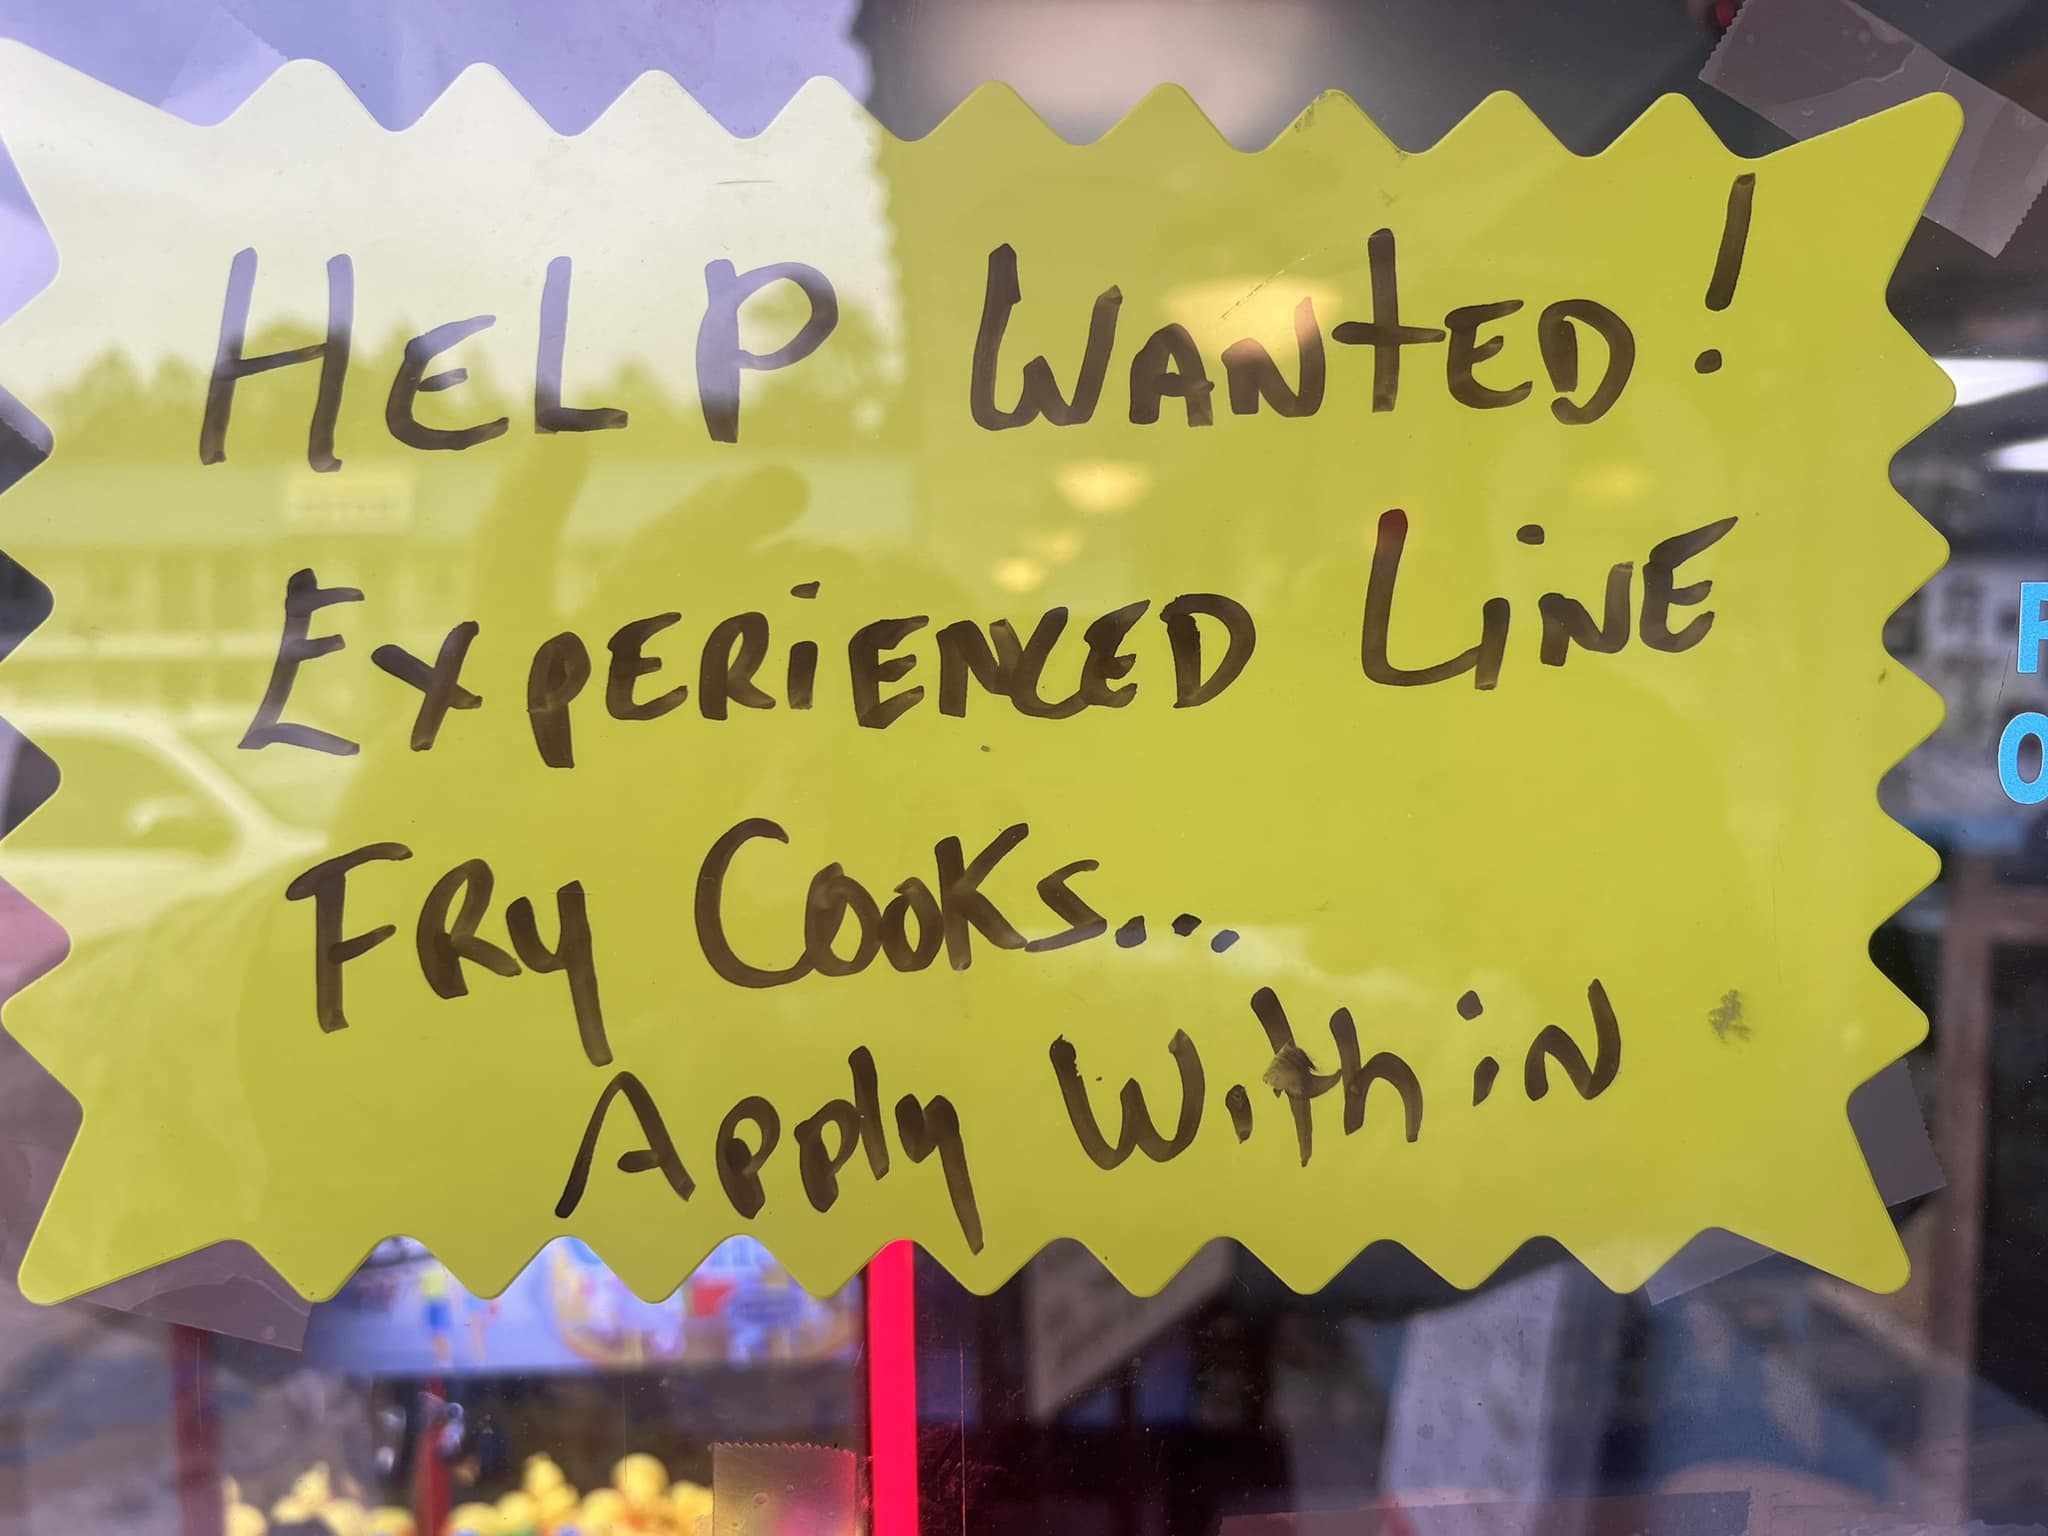 HELP WANTED!
EXPERIENCED LINE
FRY COOKS...
Apply Within